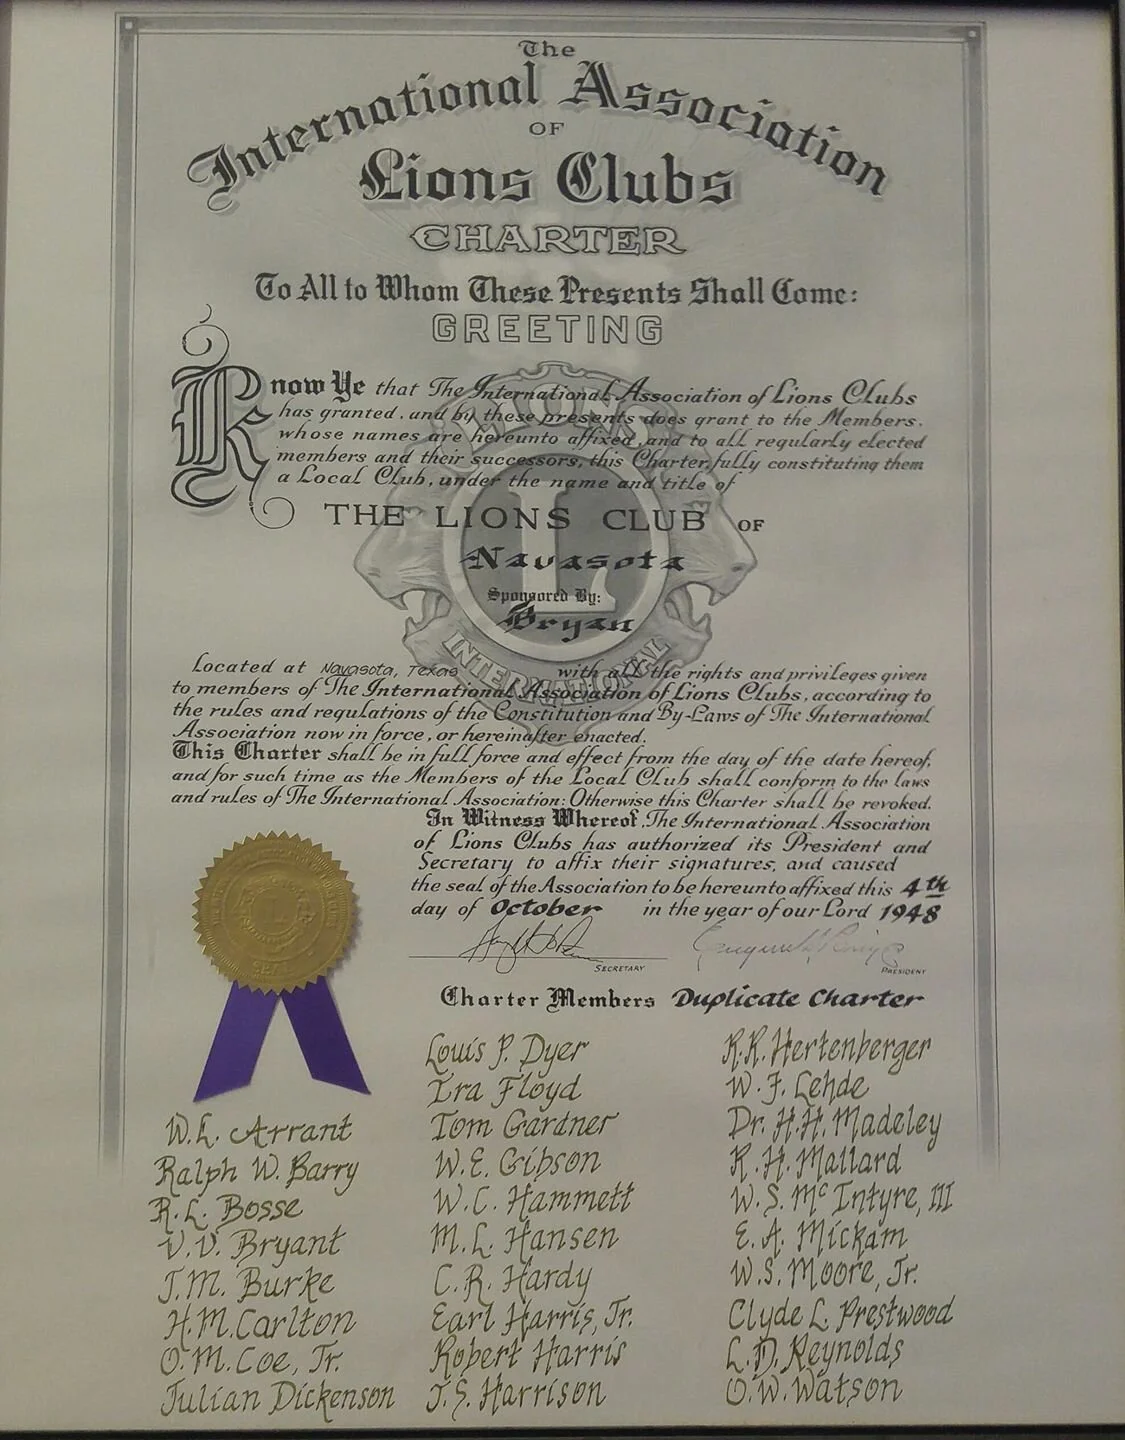 The
International Association
OF
Lions Clubs
CHARTER
To All to Whom These Presents Shall Come:
GREETING
Know Ye that The International Association of Lions Clubs
has granted, and by these presents does grant to the Members,
whose names are hereunto affixed, and to all regularly elected
members and their successors, this Charter, fully constituting them
a Local Club, under the name and title of
THE LIONS CLUB OF
Navasota
Sponsored By:
Bryan
LIONS
L
INTERNATIONAL
Located at Navasota, Texas with all the rights and privileges given
to members of The International Association of Lions Clubs, according to
the rules and regulations of the Constitution and By-Laws of The International
Association now in force, or hereinafter enacted.
This Charter shall be in full force and effect from the day of the date hereof,
and for such time as the Members of the Local Club shall conform to the laws
and rules of The International Association: Otherwise this Charter shall be revoked.
In Witness Whereof, The International Association
of Lions Clubs has authorized its President and
Secretary to affix their signatures, and caused
the seal of the Association to be hereunto affixed this 4th
day of October in the year of our Lord 1948
SECRETARY
PRESIDENT
Charter Members Duplicate Charter
W.L. Arrant
Ralph W. Barry
R.L. Bosse
V.V. Bryant
J.M. Burke
H.M. Carlton
O.M. Coe, Jr.
Julian Dickenson
Louis P. Dyer
Ira Floyd
Tom Gardner
W.E. Gibson
W.C. Hammett
M.L. Hansen
C.R. Hardy
Earl Harris, Jr.
Robert Harris
J.S. Harrison
R.R. Hertenberger
W.F. Lehde
Dr. H.H. Madeley
R.H. Mallard
W.S. McIntyre, III
E.A. Mickam
W.S. Moore, Jr.
Clyde L. Prestwood
L.D. Reynolds
O.W. Watson